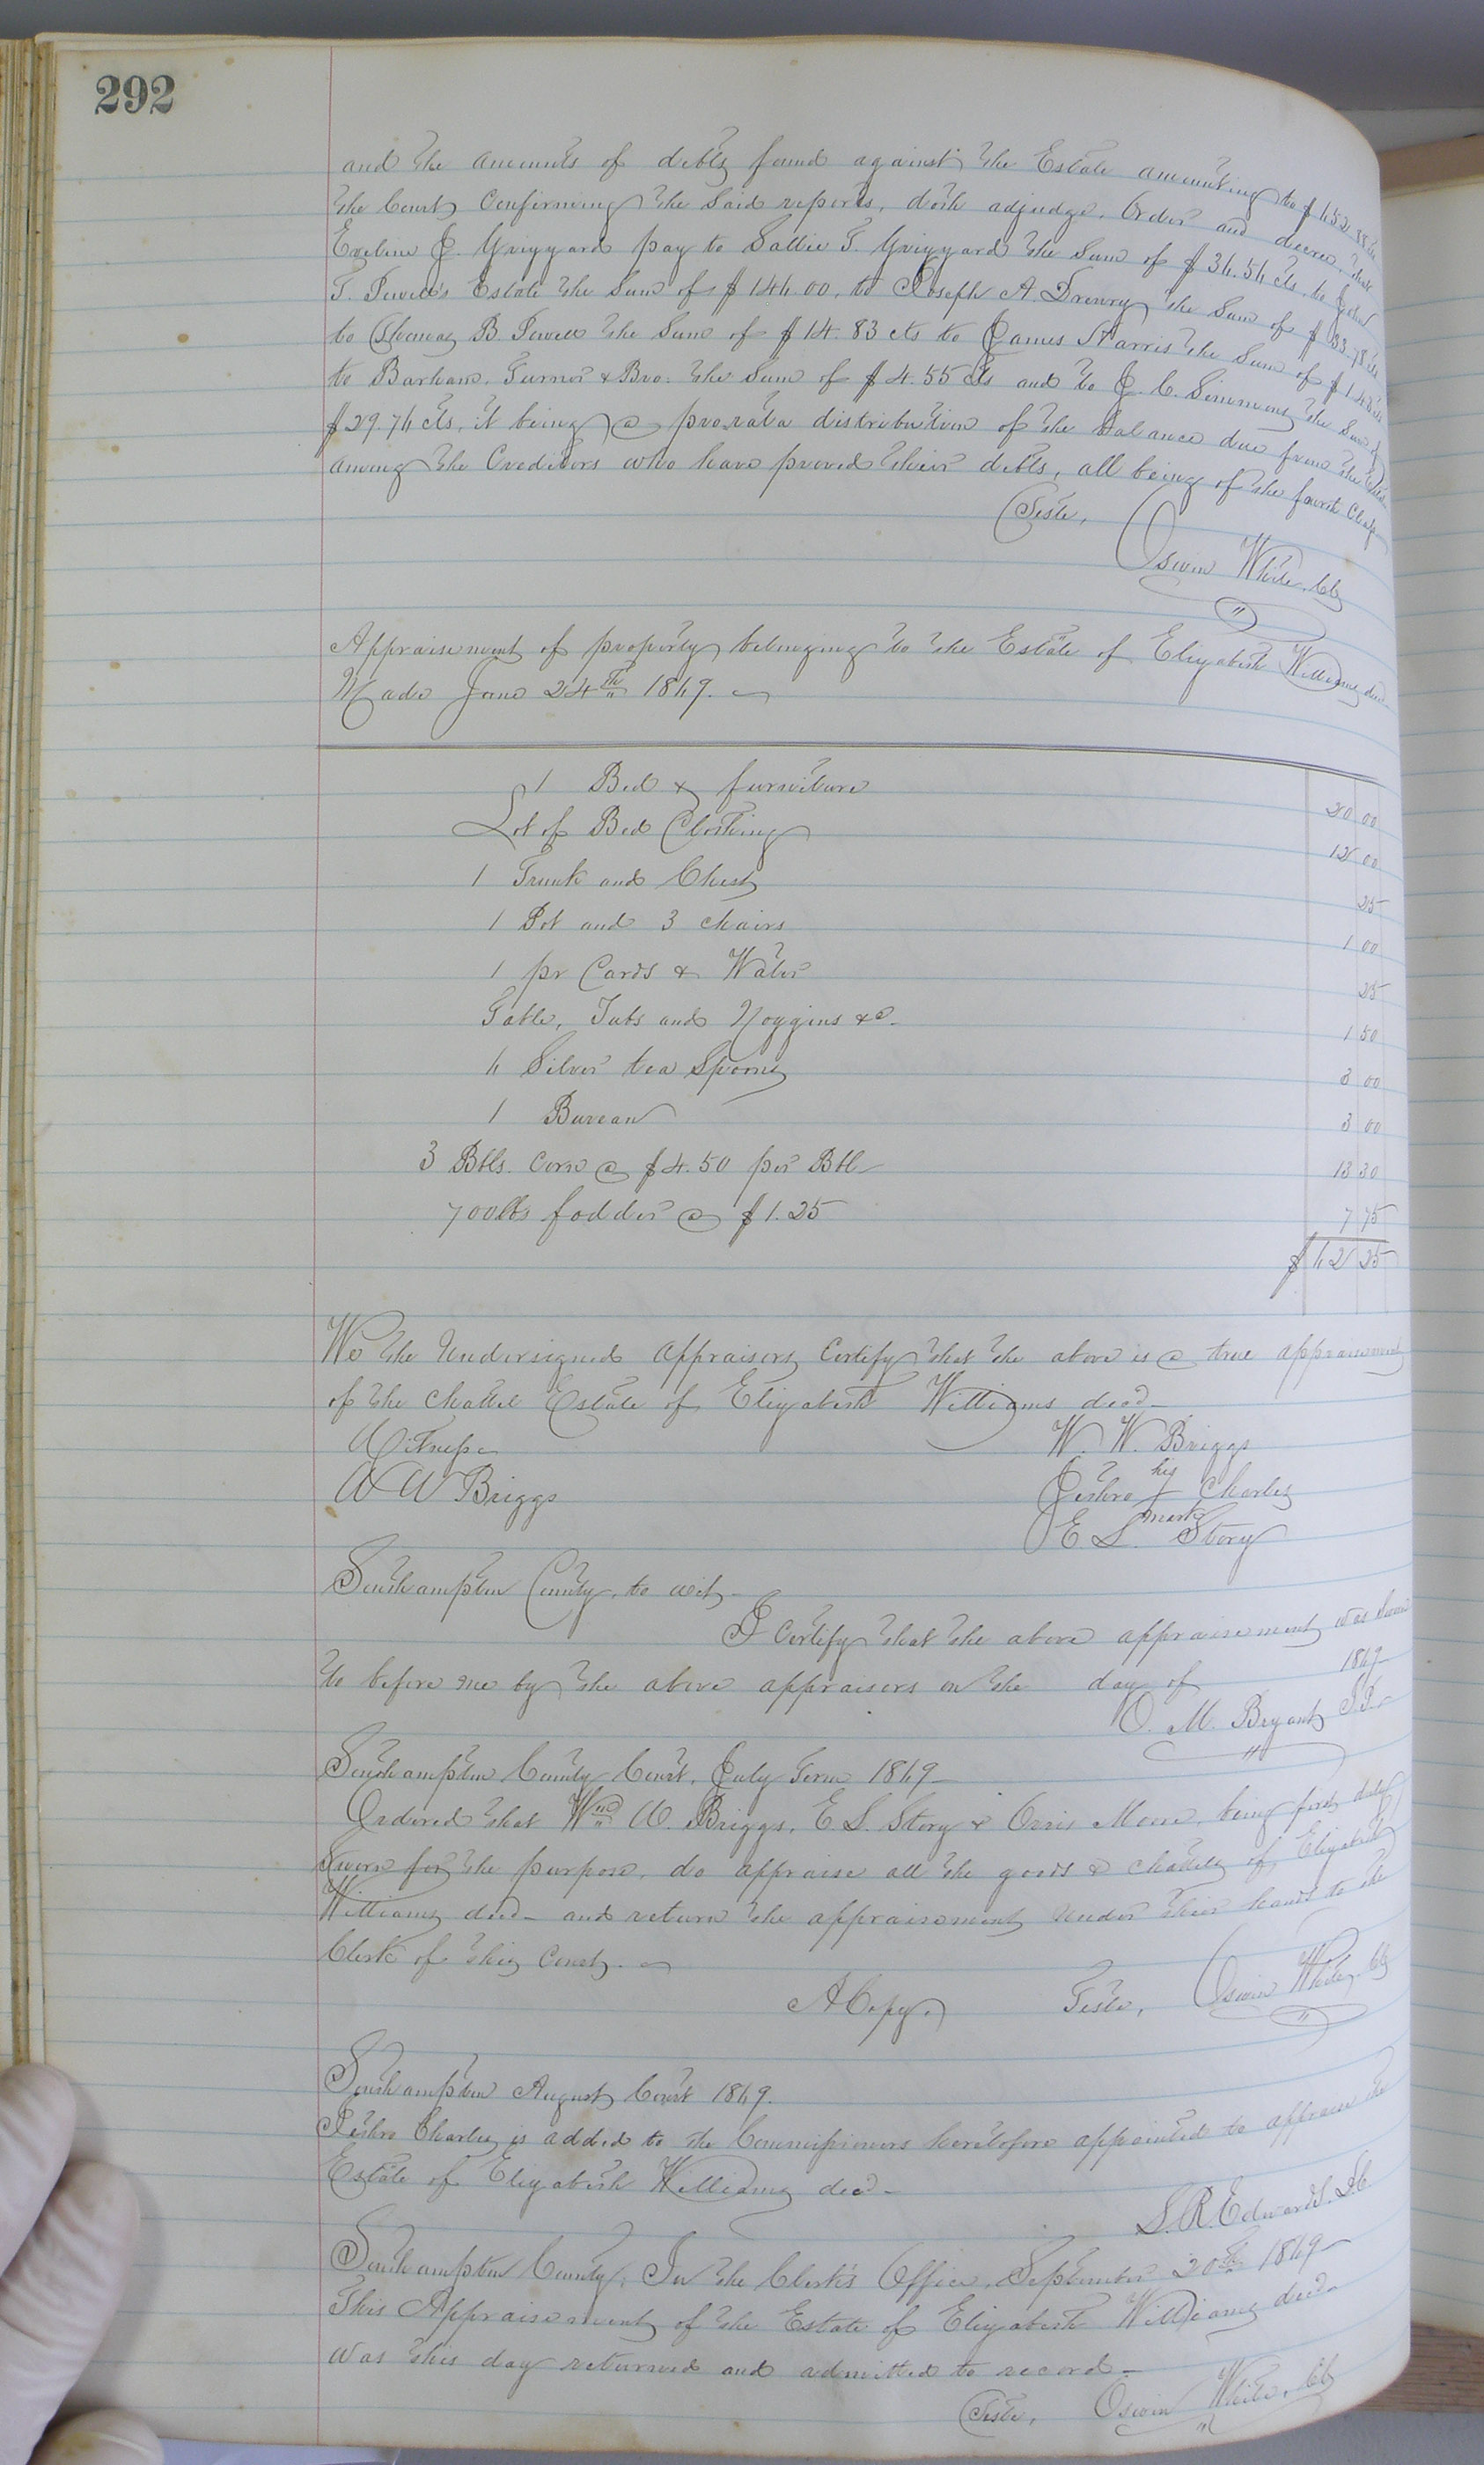 292
and the amounts of debts found against the Estate amounting to $652.88 cts
the Court Confirming the said reports, doth adjudge, Order and decree, that
Eveline J. Grizzard pay to Sallie T. Grizzard the Sum of $36.56 cts, to John
T. Powell's Estate the Sum of $146.00, to Joseph A. Drewry the Sum of $33.78 cts
to Thomas B. Powell the Sum of $14.83 cts to James Harris the Sum of
to Barham, Turner & Bro. the Sum of $4.55 cts and to J. C. Simmons the Sum of
$29.76 cts, it being a pro-rata distribution of the balance due from the Estate
among the Creditors who have proved their debts, all being of the fourth Class
Teste,
Oswin White, Clk
Appraisement of property belonging to the Estate of Elizabeth Williams decd.
Made June 24th 1869.
1 Bed & furniture 20 00
Lot of Bed Clothing 12 00
1 Trunk and Chest 25
1 Pot and 3 chairs 1 00
1 pr Cards & Water 25
Table, Tubs and Noggins &c. 1 50
6 Silver tea Spoons 3 00
1 Bureau 3 00
3 Bbls. Corn @ $4.50 per Bbl 13 50
700 lbs fodder @ $1.25 7 75
$62 25
We the Undersigned Appraisers Certify that the above is a true appraisement
of the chattel Estate of Elizabeth Williams decd
Witness W. W. Briggs
W W Briggs Jethro his Charles
mark
E. S. Story
Southampton County, to wit
I Certify that the above appraisement was sworn
to before me by the above appraisers on the day of 1869
O. M. Bryant J.P.
Southampton County Court, July Term 1869
Ordered that Wm. W. Briggs, E. S. Story & Orris Moore, being first duly
Sworn for the purpose, do appraise all the goods & chattels of Elizabeth
Williams decd and return the appraisement under their hands to the
Clerk of this Court.
A Copy. Teste, Oswin White, Clk
Southampton August Court 1869.
Jethro Charles is added to the Commissioners heretofore appointed to appraise the
Estate of Elizabeth Williams decd
S. R. Edwards. D.C.
Southampton County, In the Clerk's Office, September 20th 1869
This Appraisement of the Estate of Elizabeth Williams decd
was this day returned and admitted to record.
Teste, Oswin White, Clk